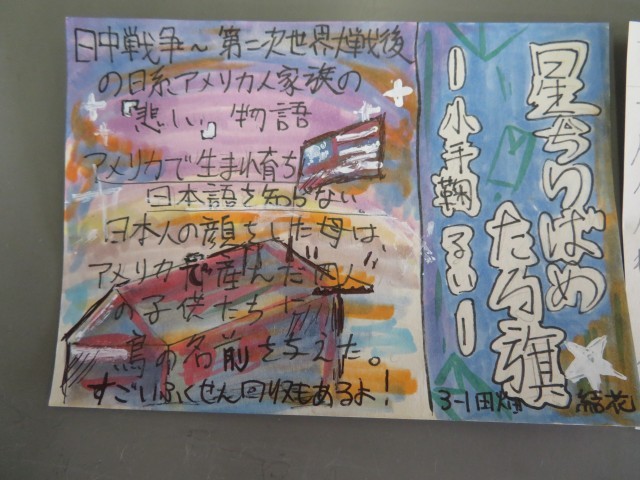 星ちりばめ
たる旗
ー小手鞠るいー
3-1田畑 結花
日中戦争～第二次世界大戦後
の日系アメリカ人家族の
『悲しい』物語
アメリカで生まれ育ち
日本語を知らない。
日本人の顔をした母は、
アメリカで産んだ四人
の子供たちに
鳥の名前を与えた。
すごいふくせん回収もあるよ!